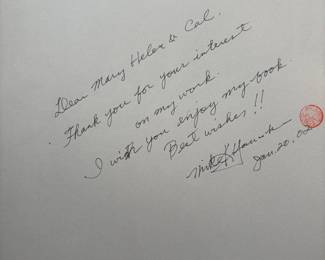 Dear Mary Helen & Cal.
Thank you for your interest
on my work.
I wish you enjoy my book.
Best wishes!!
Mike
Jan. 20. 02